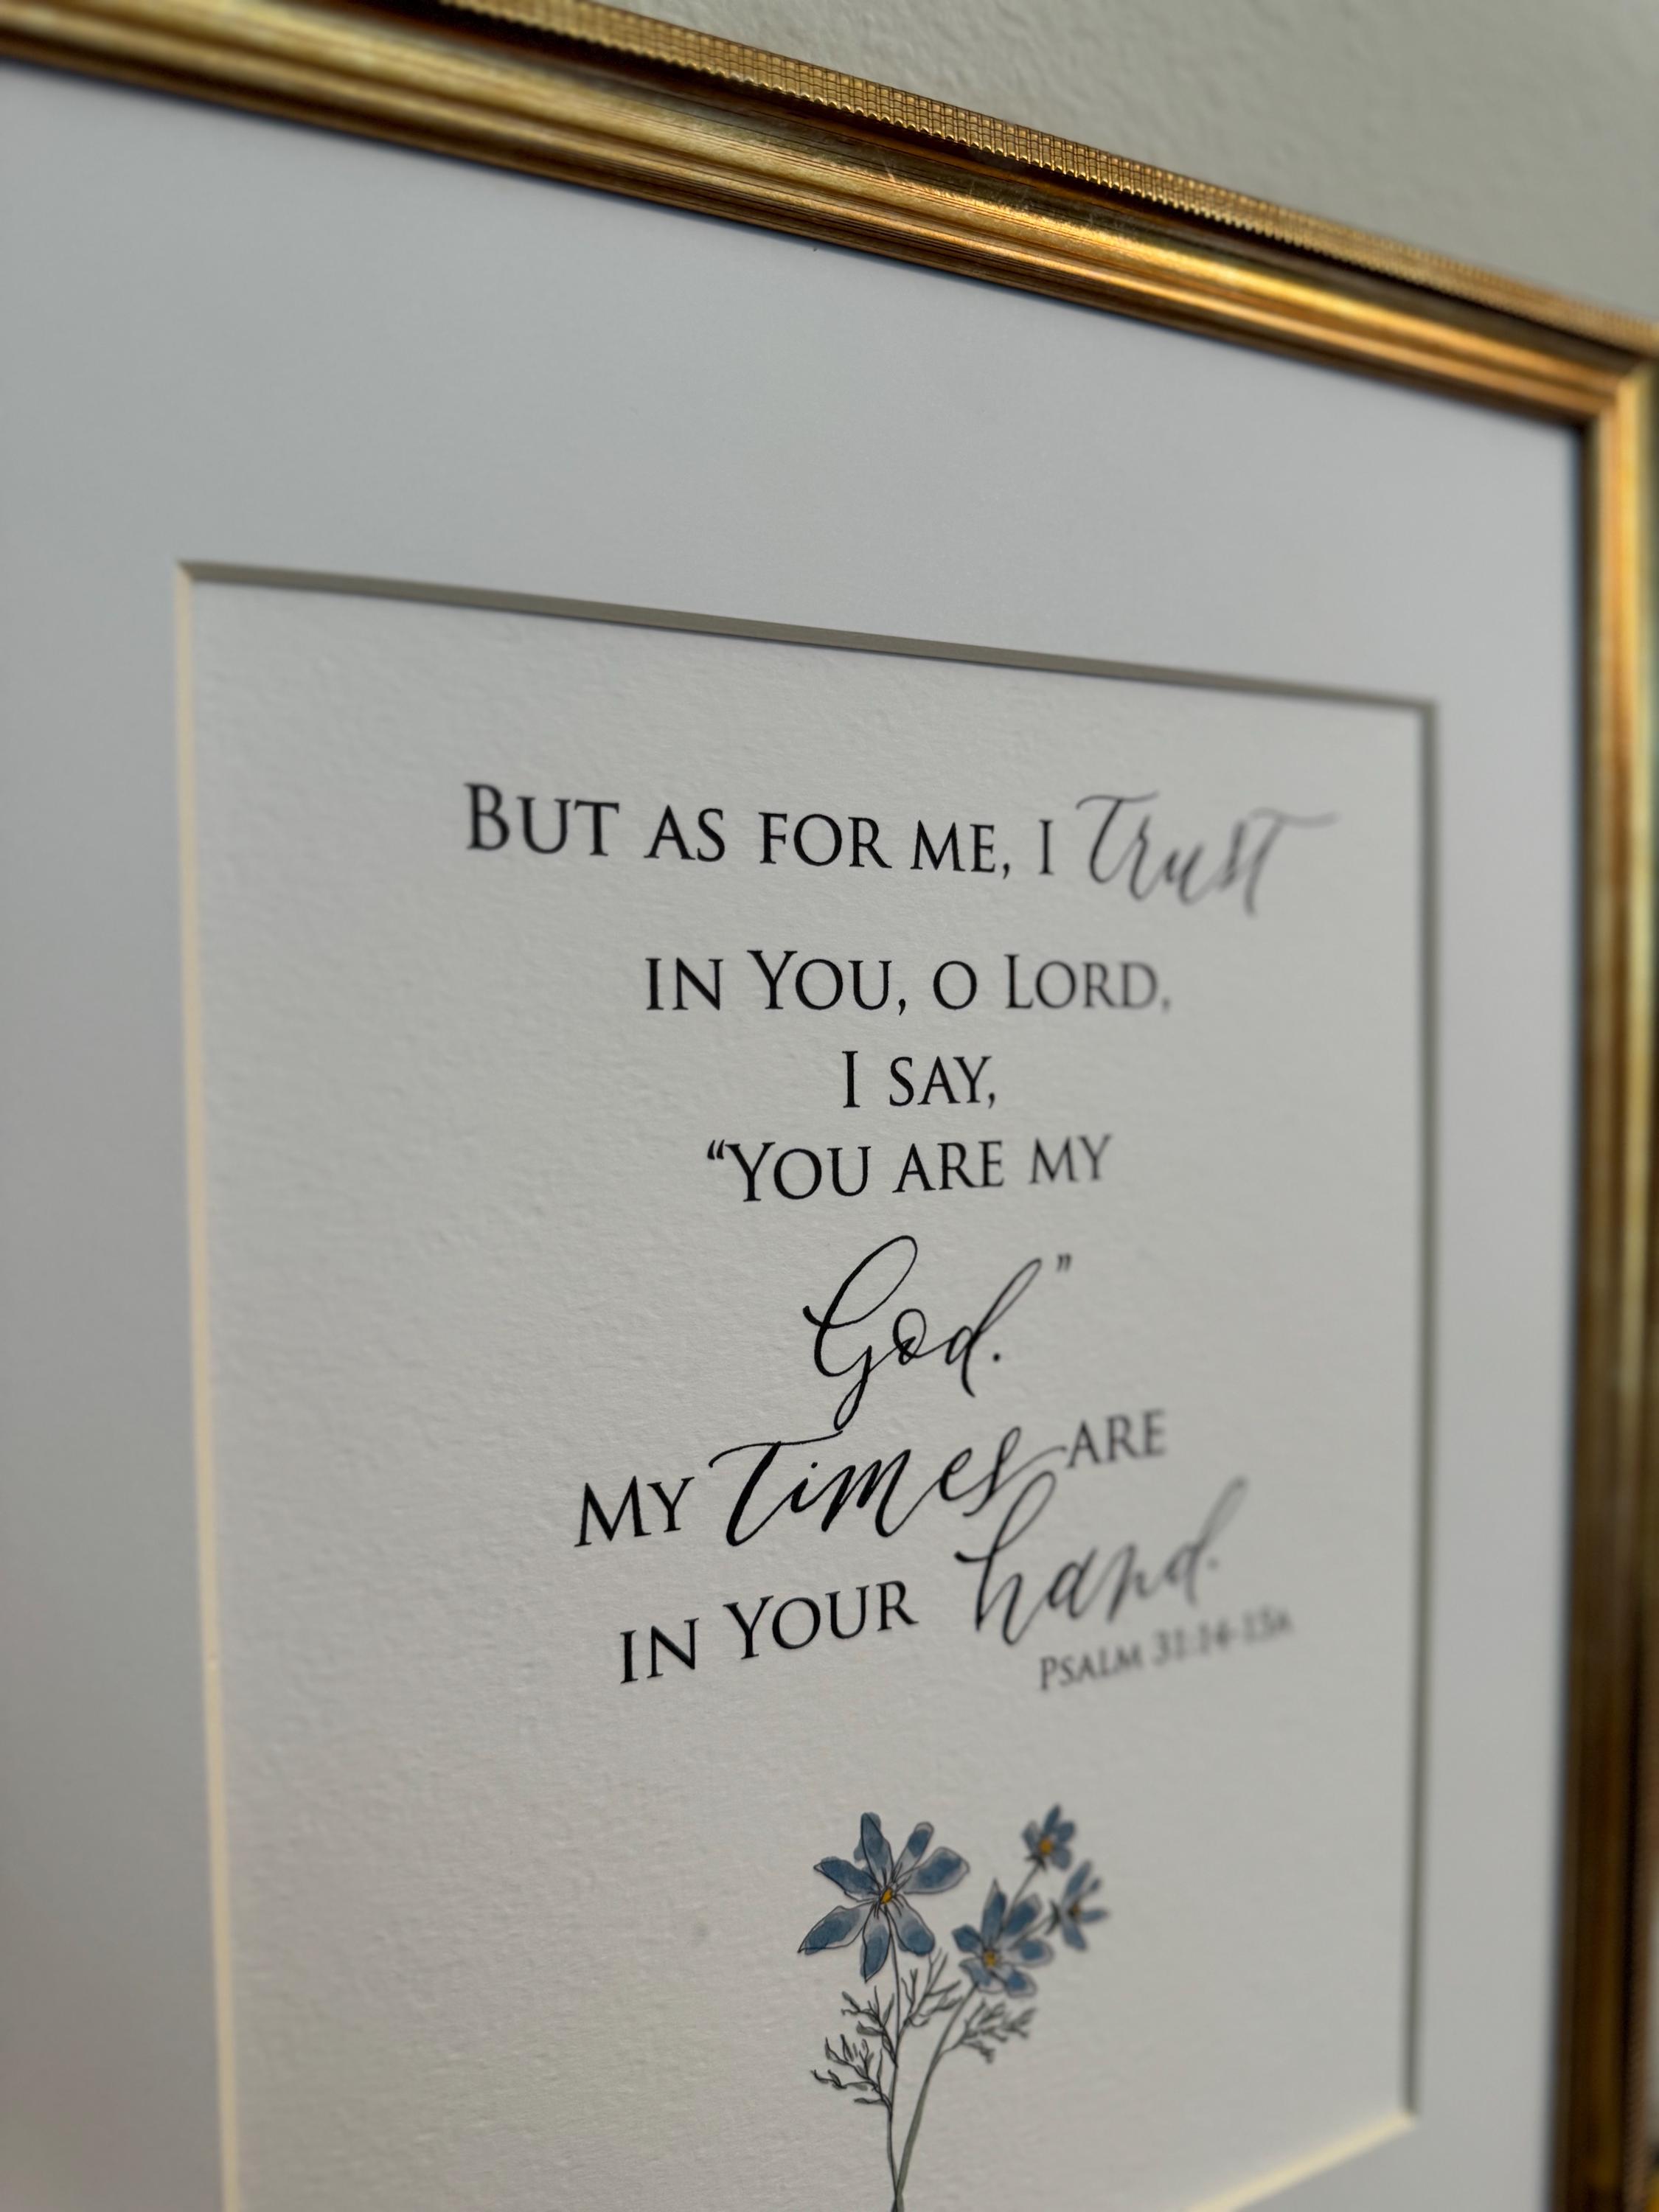 But as for me, I trust
in You, o Lord,
I say,
“You are my
God.”
My times are
in Your hand.
Psalm 31:14-15a